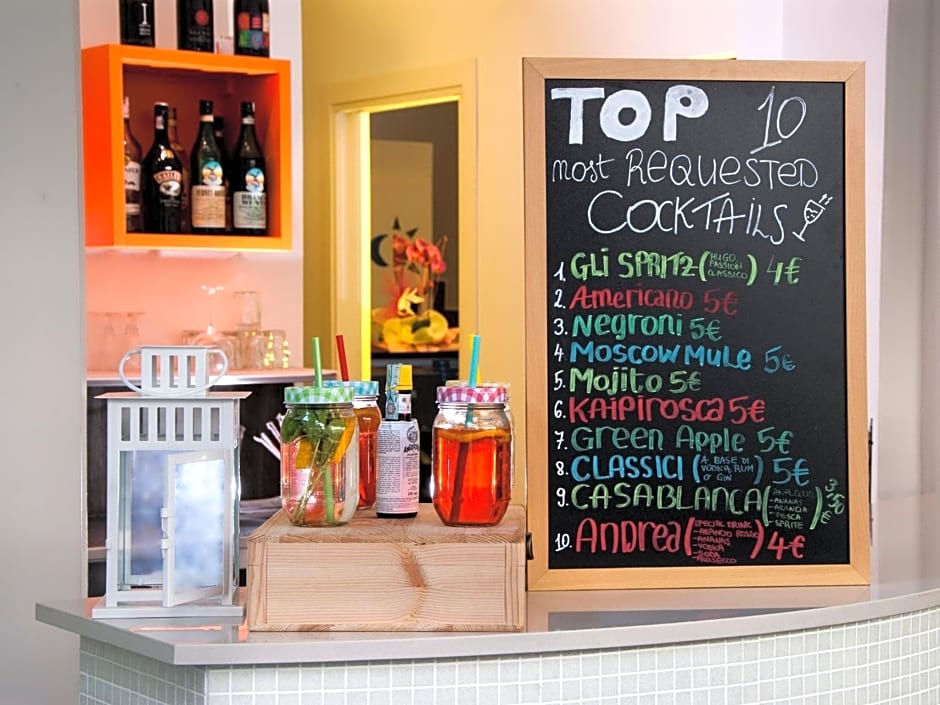 TOP 10
most REQUESTED
COCKTAILS
1. GLI SPRITZ (HUGO PASSION CLASSICO) 4€
2. Americano 5€
3. Negroni 5€
4. MOSCOW MULE 5€
5. MOJITO 5€
6. KAIPIROSCA 5€
7. Green Apple 5€
8. CLASSICI (A BASE DI VODKA, RUM O GIN) 5€
9. CASABLANCA (ANALCOLICO -ANANAS -ARANCIA -PESCA -SPRITE) 3,50€
10. Andrea (SPECIAL DRINK -ARANCIO ROSSO -ANANAS -VODKA -SODA -PROSECCO) 4€
BAILEYS
FERNET-BRANCA
BRANCA
MENTA